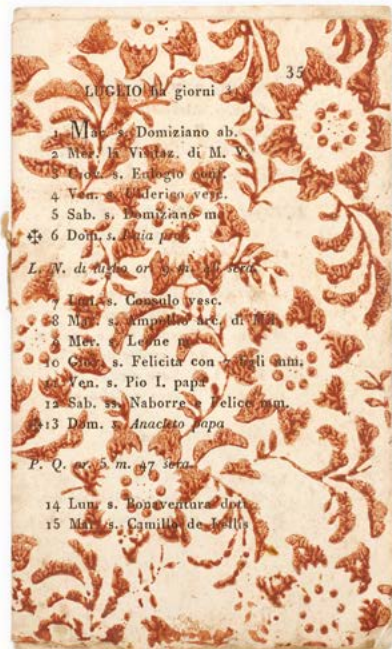 35
LUGLIO ha giorni 31
1 Mar. s. Domiziano ab.
2 Mer. la Visitaz. di M. V.
3 Giov. s. Eulogio conf.
4 Ven. s. Ulderico vesc.
5 Sab. s. Domiziano m.
✠ 6 Dom. s. Isaia prof.
L. N. di luglio or. 9 m. sera.
7 Lun. s. Consulo vesc.
8 Mar. s. Ampellio arc. di Mil.
9 Mer. s. Leone
10 Giov. s. Felicita con 7 figli mm.
11 Ven. s. Pio I. papa
12 Sab. ss. Naborre e Felice mm.
✠13 Dom. s. Anacleto papa
P. Q. or. 5 m. 47 sera.
14 Lun. s. Bonaventura dott.
15 Mar. s. Camillo de Lellis